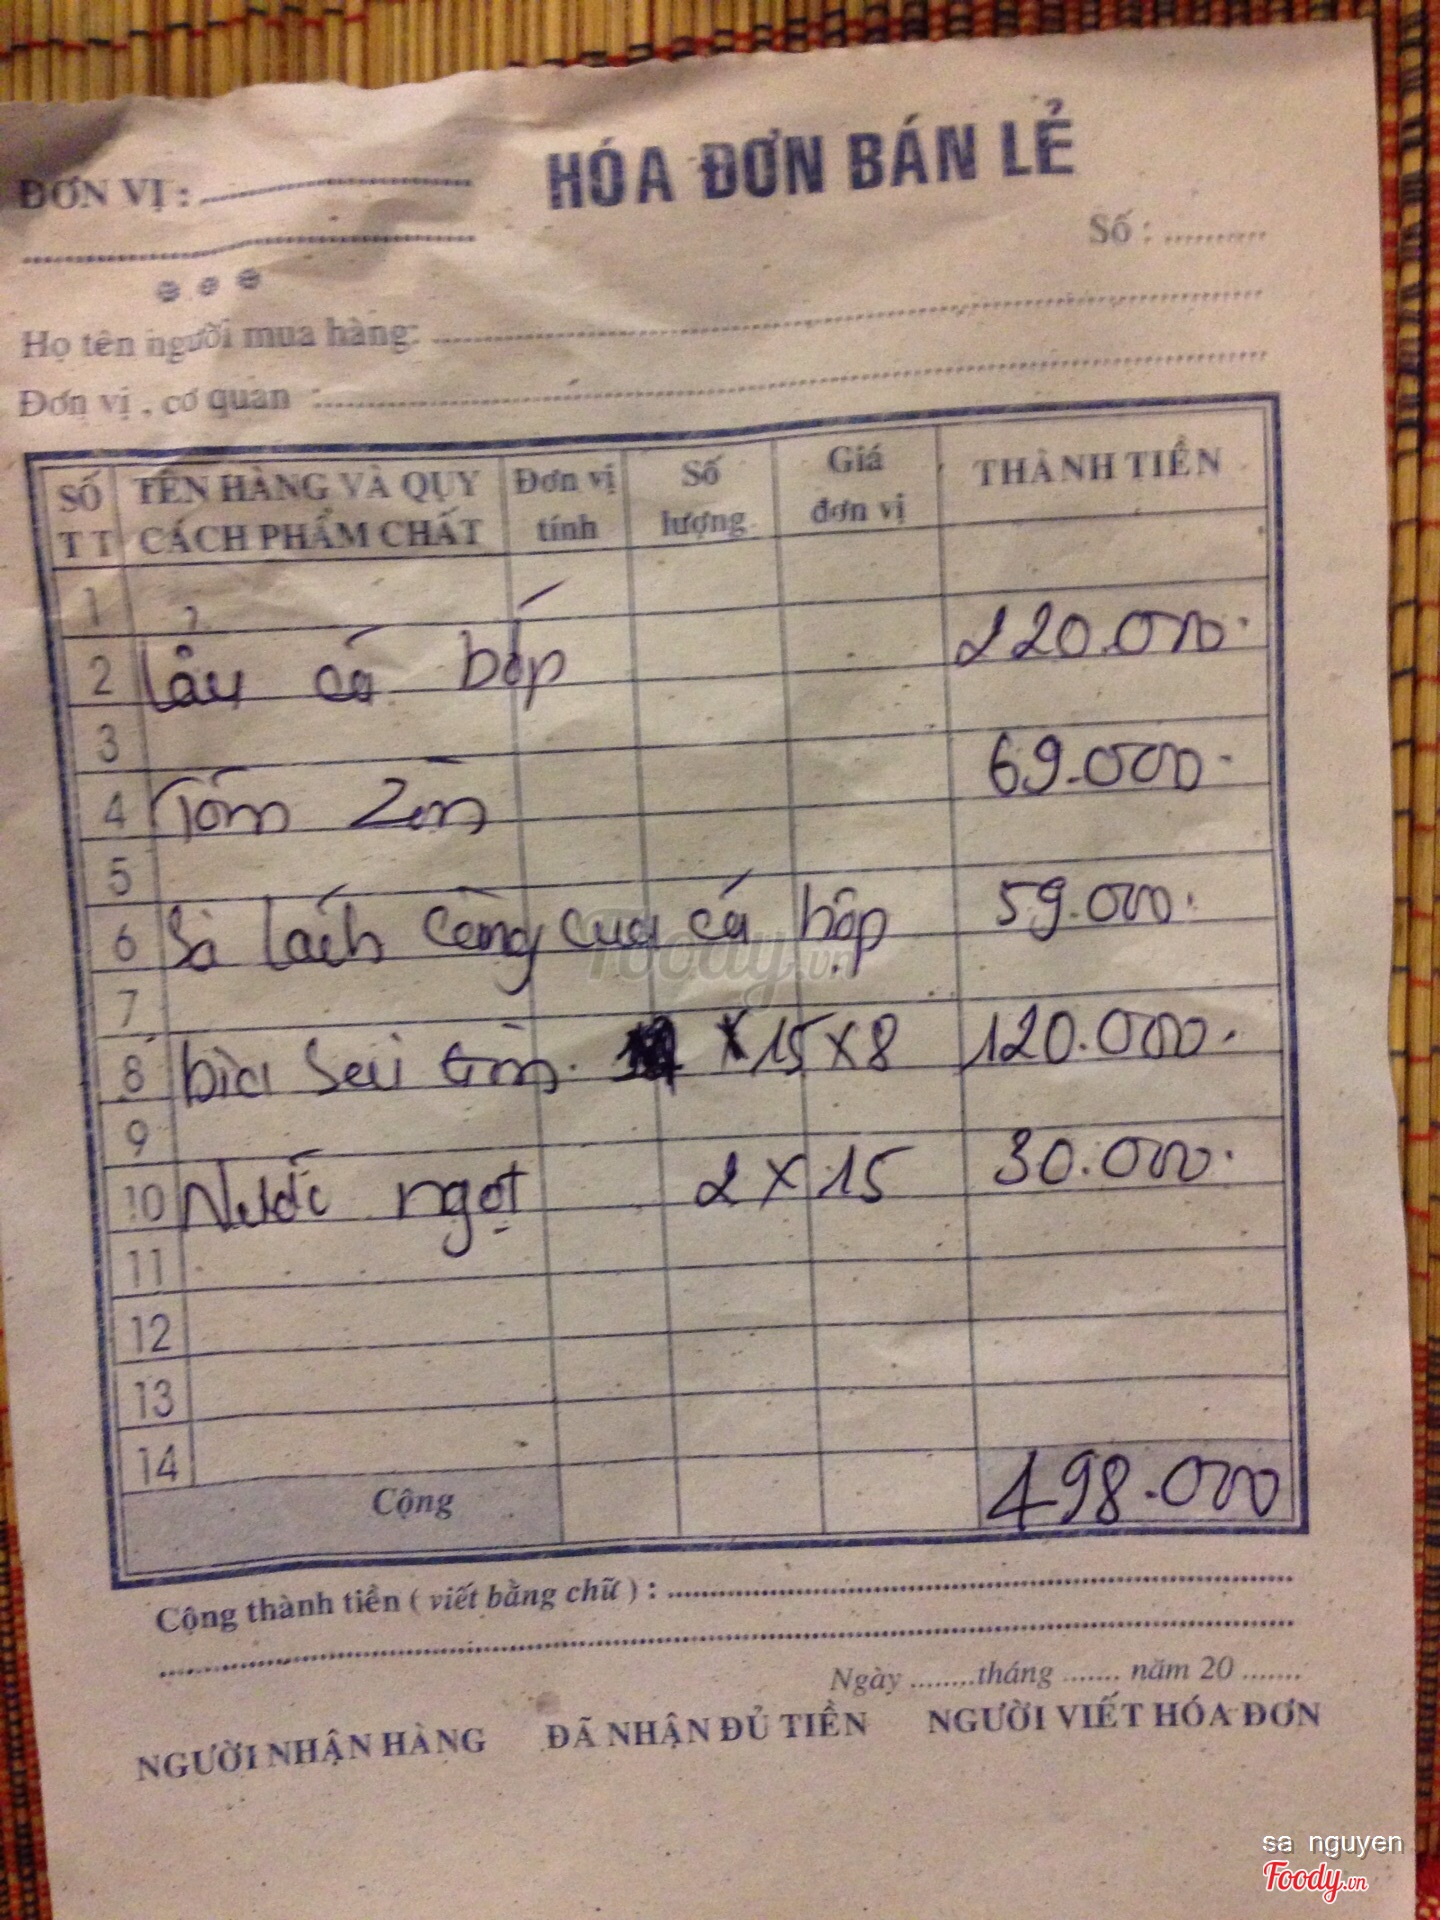 HÓA ĐƠN BÁN LẺ
ĐƠN VỊ :
Số :
Họ tên người mua hàng:
Đơn vị , cơ quan :
SỐ TT TÊN HÀNG VÀ QUY CÁCH PHẨM CHẤT Đơn vị tính Số lượng Giá đơn vị THÀNH TIỀN
1
2 Lẩu cá bốp 220.000
3
4 Tôm 69.000
5
6 Sà lách càng cua cá hộp 59.000
7
8 bia 15 x 8 120.000
9
10 Nước ngọt 2 x 15 30.000
11
12
13
14
Cộng 498.000
Cộng thành tiền ( viết bằng chữ ) :
Ngày ........tháng ....... năm 20 .......
NGƯỜI NHẬN HÀNG ĐÃ NHẬN ĐỦ TIỀN NGƯỜI VIẾT HÓA ĐƠN
Foody.vn
sa nguyen
Foody.vn